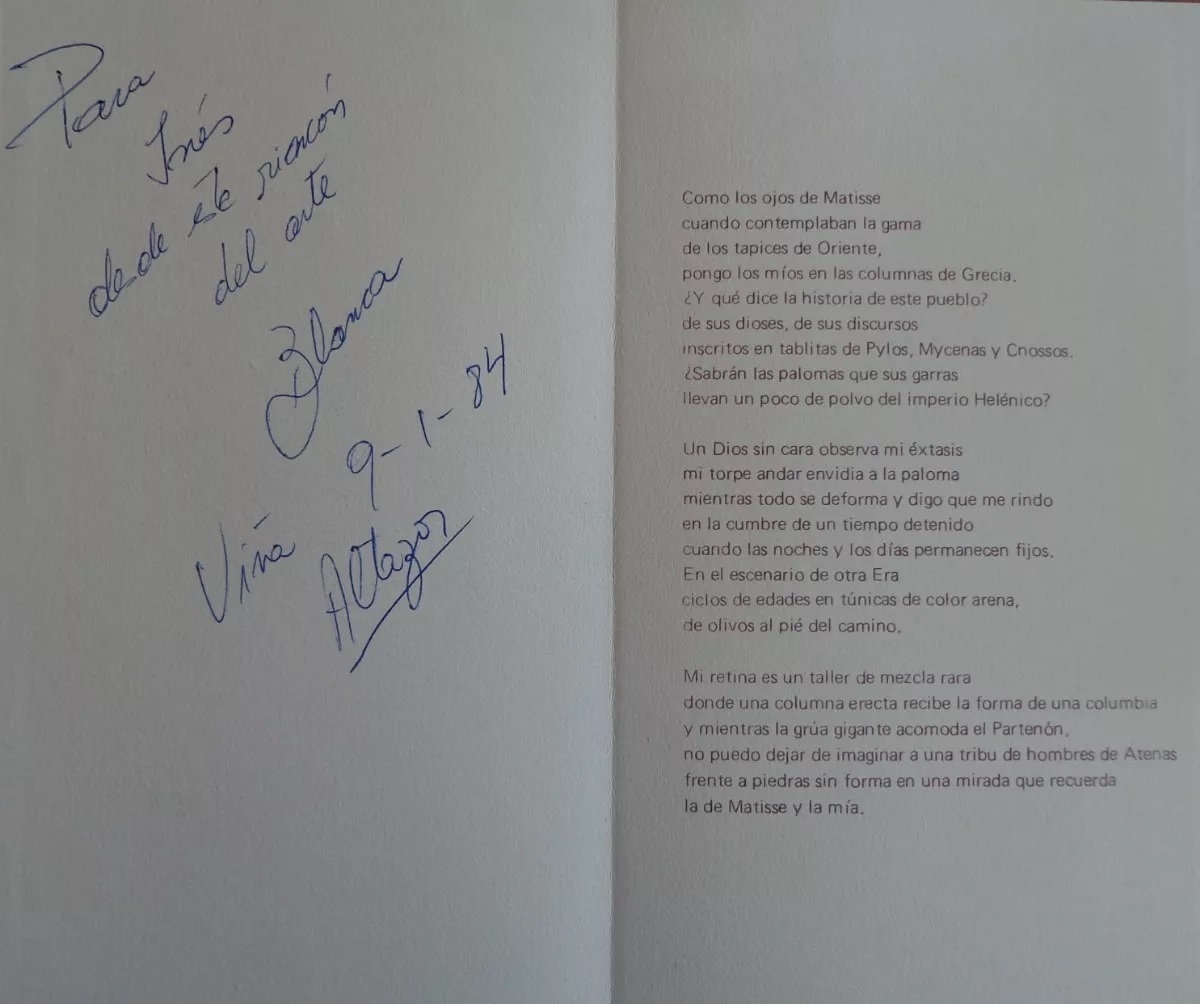 Para
Inés
desde este rincón
del arte
Blanca
9-1-84
Viña
Altazor
Como los ojos de Matisse
cuando contemplaban la gama
de los tapices de Oriente,
pongo los míos en las columnas de Grecia.
¿Y qué dice la historia de este pueblo?
de sus dioses, de sus discursos
inscritos en tablitas de Pylos, Mycenas y Cnossos.
¿Sabrán las palomas que sus garras
llevan un poco de polvo del imperio Helénico?
Un Dios sin cara observa mi éxtasis
mi torpe andar envidia a la paloma
mientras todo se deforma y digo que me rindo
en la cumbre de un tiempo detenido
cuando las noches y los días permanecen fijos.
En el escenario de otra Era
ciclos de edades en túnicas de color arena,
de olivos al pié del camino.
Mi retina es un taller de mezcla rara
donde una columna erecta recibe la forma de una columbia
y mientras la grúa gigante acomoda el Partenón,
no puedo dejar de imaginar a una tribu de hombres de Atenas
frente a piedras sin forma en una mirada que recuerda
la de Matisse y la mía.